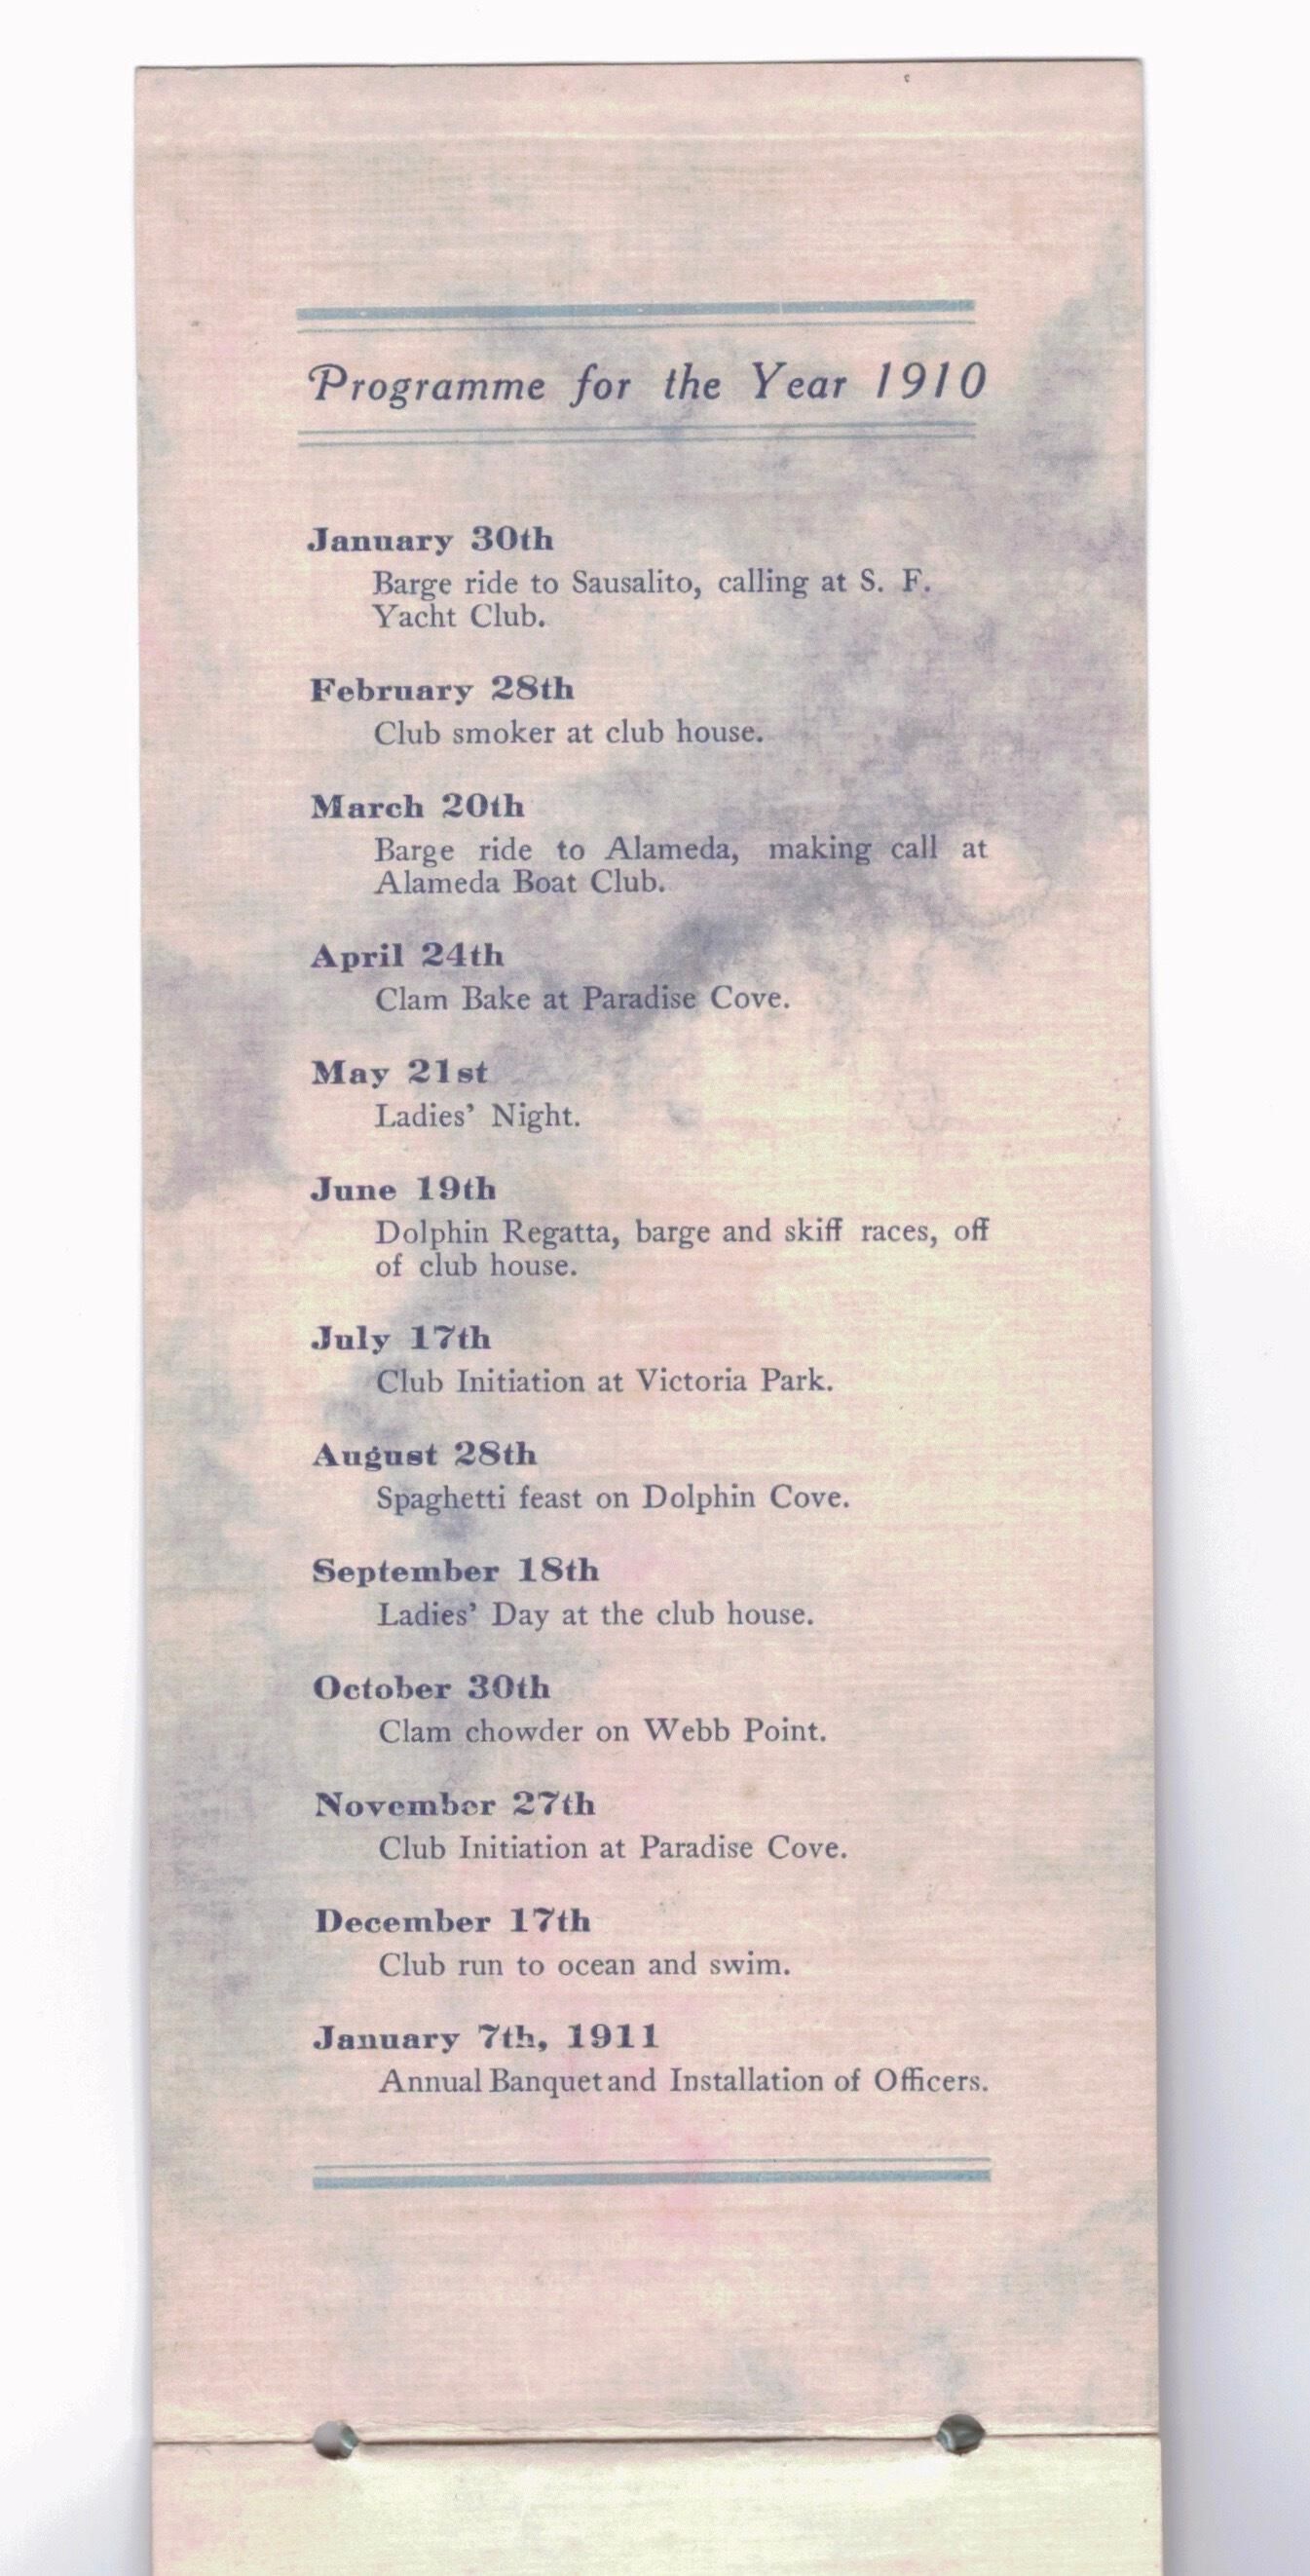 Programme for the Year 1910
January 30th
Barge ride to Sausalito, calling at S. F.
Yacht Club.
February 28th
Club smoker at club house.
March 20th
Barge ride to Alameda, making call at
Alameda Boat Club.
April 24th
Clam Bake at Paradise Cove.
May 21st
Ladies' Night.
June 19th
Dolphin Regatta, barge and skiff races, off
of club house.
July 17th
Club Initiation at Victoria Park.
August 28th
Spaghetti feast on Dolphin Cove.
September 18th
Ladies' Day at the club house.
October 30th
Clam chowder on Webb Point.
November 27th
Club Initiation at Paradise Cove.
December 17th
Club run to ocean and swim.
January 7th, 1911
Annual Banquet and Installation of Officers.